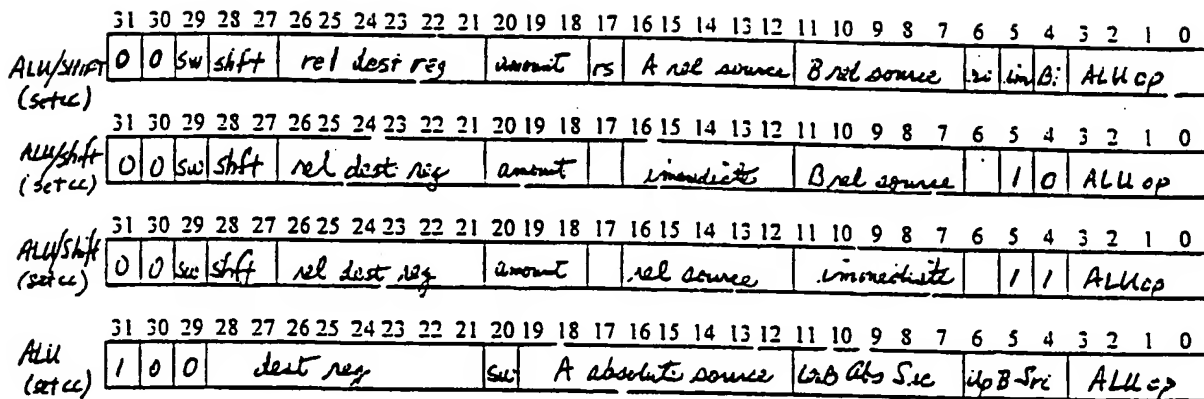 31 30 29 28 27 26 25 24 23 22 21 20 19 18 17 16 15 14 13 12 11 10 9 8 7 6 5 4 3 2 1 0
ALU/SHIFT 0 0 sw shft rel dest reg amount rs A rel source B rel source im Bi ALU op
(setcc)
31 30 29 28 27 26 25 24 23 22 21 20 19 18 17 16 15 14 13 12 11 10 9 8 7 6 5 4 3 2 1 0
ALU/shft 0 0 sw shft rel dest reg amount immediate B rel source 1 0 ALU op
(setcc)
31 30 29 28 27 26 25 24 23 22 21 20 19 18 17 16 15 14 13 12 11 10 9 8 7 6 5 4 3 2 1 0
ALU/Shift 0 0 sw shft rel dest reg amount rel source immediate 1 1 ALU op
(setcc)
31 30 29 28 27 26 25 24 23 22 21 20 19 18 17 16 15 14 13 12 11 10 9 8 7 6 5 4 3 2 1 0
ALU 1 0 0 dest reg sw A absolute source Abs ALU op
(setcc)